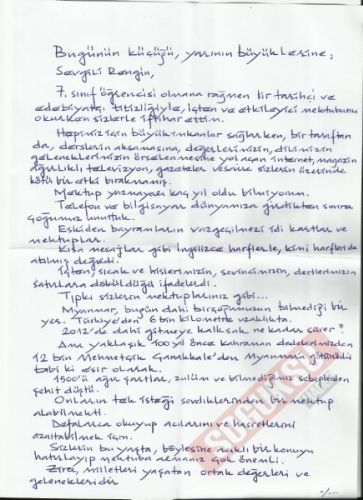 Bugünün küçüğü, yarının büyüklerine;
Sevgili Rengin,
7. sınıf öğrencisi olmana rağmen bir tarihçi ve
edebiyatçı titizliğiyle, içten ve etkileyici mektubunu
okurken sizlerle iftihar ettim.
Hepiniz için büyük imkanlar sağlarken, bir taraftan
da, derslerin aksamasına, değerlerimizin, dilimizin
geleneklerimizin örselenmesine yol açan internet, magazin
ağırlıklı televizyon, gazeteler sizlerin üzerinde
kötü bir etki bırakmamış.
Mektup yazmayalı kaç yıl oldu bilmiyorum.
Telefon ve bilgisayar dünyamıza girdikten sonra
çoğumuz unuttuk.
Eskiden bayramların vazgeçilmezi idi kartlar ve
mektuplar.
Kısa mesajlar gibi İngilizce harflerle, kimi harfler de
atılmış değildi.
İçten, sıcak ve hislerimizin, sevincimizin, dertlerimizin
satırlara döküldüğü ifadelerdi.
Tıpkı sizlerin mektuplarınız gibi...
Myanmar, bugün dahi birçoğumuzun bilmediği bir
yer. Türkiye'den 6 bin kilometre uzaklıkta.
2012'de dahi gitmeye kalksak ne kadar sürer?
Ama yaklaşık 100 yıl önce kahraman dedelerimizden
12 bin Mehmetçik Çanakkale'den Myanmar'a götürüldü
tabi ki esir olarak.
1500'ü ağır şartlar, zulüm ve bilmediğimiz sebeplerden
şehit düştü.
Onların tek isteği sevdiklerinden bir mektup
alabilmekti.
Defalarca okuyup acılarını ve hasretlerini
azaltabilmek için.
Sizlerin bu yaşta, böylesine acıklı bir konuyu
hatırlayıp mektuba almanız çok önemli.
Zira, milletleri yaşatan ortak değerleri ve
gelenekleridir
./...